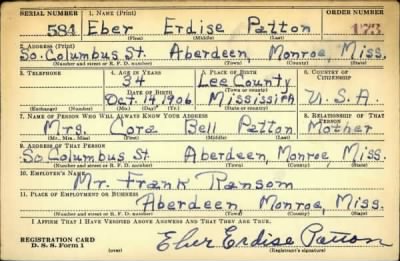 SERIAL NUMBER 1. NAME (Print) ORDER NUMBER
584 Eber Erdise Patton 173
(First) (Middle) (Last)
2. ADDRESS (Print)
So. Columbus St. Aberdeen, Monroe, Miss.
(Number and street or R. F. D. number) (Town) (County) (State)
3. TELEPHONE 4. AGE IN YEARS 5. PLACE OF BIRTH 6. COUNTRY OF CITIZENSHIP
34 Lee County
DATE OF BIRTH (Town or county)
Oct. 14 1906 Mississippi U.S.A.
(Exchange) (Number) (Mo.) (Day) (Yr.) (State or country)
7. NAME OF PERSON WHO WILL ALWAYS KNOW YOUR ADDRESS 8. RELATIONSHIP OF THAT PERSON
Mrs. Cora Bell Patton Mother
(Mr., Mrs., Miss) (First) (Middle) (Last)
9. ADDRESS OF THAT PERSON
So. Columbus St Aberdeen, Monroe, Miss.
(Number and street or R. F. D. number) (Town) (County) (State)
10. EMPLOYER'S NAME
Mr. Frank Ransom
11. PLACE OF EMPLOYMENT OR BUSINESS
Aberdeen, Monroe, Miss.
(Number and street or R. F. D. number) (Town) (County) (State)
I AFFIRM THAT I HAVE VERIFIED ABOVE ANSWERS AND THAT THEY ARE TRUE.
REGISTRATION CARD
D. S. S. Form 1 (over) Eber Erdise Patton
(Registrant's signature)